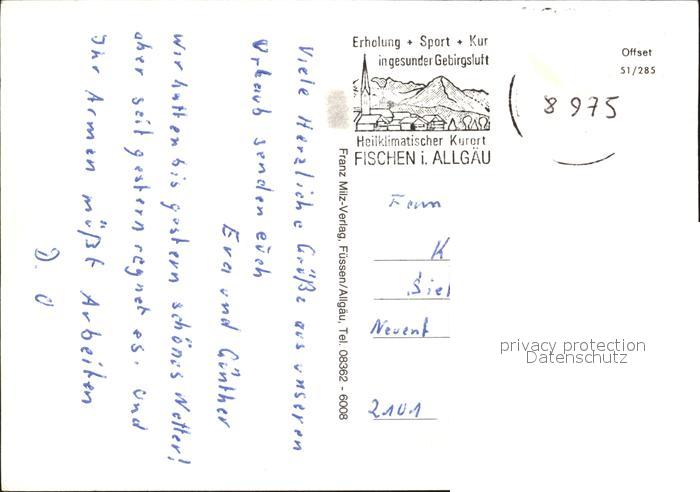 Viele Herzliche Grüße aus unseren
Urlaub senden euch
Eva und Günther
Wir hatten bis gestern schönes Wetter!
aber seit gestern regnet es. Und
Ihr Armen müßt Arbeiten
D. O
Franz Milz-Verlag, Füssen/Allgäu, Tel. 08362 - 6008
Erholung + Sport + Kur
in gesunder Gebirgsluft
Heilklimatischer Kurort
FISCHEN i. ALLGÄU
8975
Offset
51/285
Fam
K
Siel
Neuent
2101
privacy protection
Datenschutz